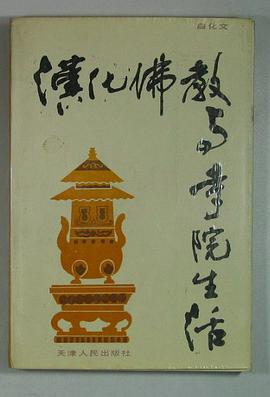 白化文
漢化佛教
与寺院生活
天津人民出版社